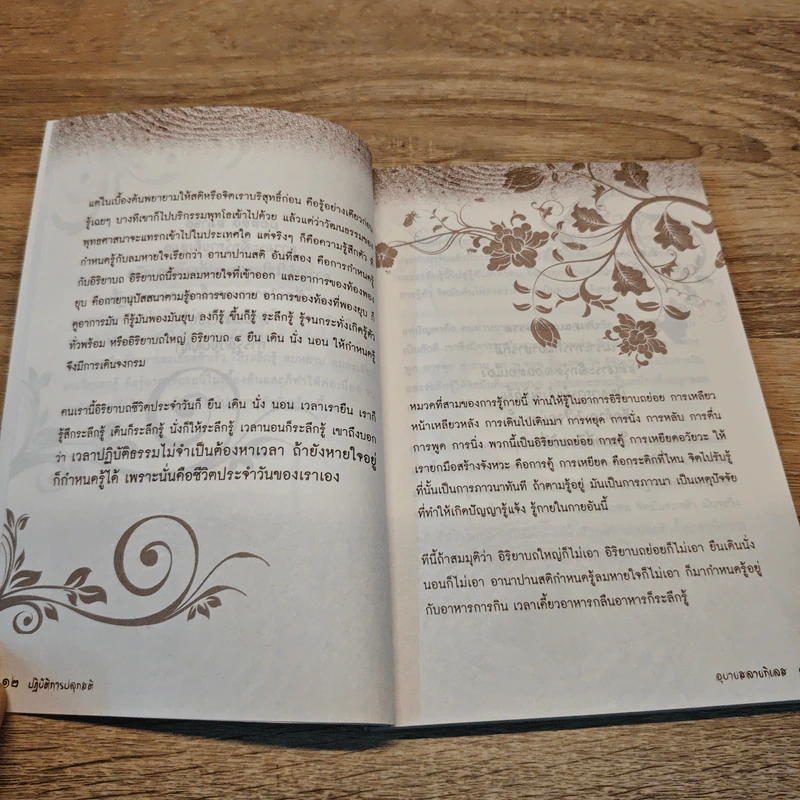 แต่ในเบื้องต้นพยายามให้สติหรือจิตเราบริสุทธิ์ก่อน คือรู้อย่างเดียวก่อน
รู้เฉยๆ บางทีเขาก็ไปบริกรรมพุทโธเข้าไปด้วย แล้วแต่ว่าวัฒนธรรมของ
พุทธศาสนาจะแทรกเข้าไปในประเทศใด แต่จริงๆ ก็คือความรู้สึกตัว
กำหนดรู้กับลมหายใจเรียกว่า อานาปานสติ อันที่สอง คือการกำหนดรู้
กับอิริยาบถ อิริยาบถนี้รวมลมหายใจที่เข้าออก และอาการของท้องพอง
ยุบ คือกายานุปัสสนาตามรู้อาการของกาย อาการของท้องที่พองยุบ ก็
ดูอาการมัน ก็รู้มันพองมันยุบ ลงก็รู้ ขึ้นก็รู้ ระลึกรู้ รู้จนกระทั่งเกิดรู้ตัว
ทั่วพร้อม หรืออิริยาบถใหญ่ อิริยาบถ ๔ ยืน เดิน นั่ง นอน ให้กำหนดรู้
จึงมีการเดินจงกรม
คนเรานี้อิริยาบถชีวิตประจำวันก็ ยืน เดิน นั่ง นอน เวลาเรายืน เราก็
รู้สึกระลึกรู้ เดินก็ระลึกรู้ นั่งก็ให้ระลึกรู้ เวลานอนก็ระลึกรู้ เขาถึงบอก
ว่า เวลาปฏิบัติธรรมไม่จำเป็นต้องหาเวลา ถ้ายังหายใจอยู่
ก็กำหนดรู้ได้ เพราะนั่นคือชีวิตประจำวันของเราเอง
๑๒ ปฏิบัติการปลุกสติ
หมวดที่สามของการรู้กายนี้ ท่านให้รู้ในอาการอิริยาบถย่อย การเหลียว
หน้าเหลียวหลัง การเดินไปเดินมา การหยุด การนั่ง การหลับ การตื่น
การพูด การนิ่ง พวกนี้เป็นอิริยาบถย่อย การคู้ การเหยียดอวัยวะ ให้
เรายกมือสร้างจังหวะ คือการคู้ การเหยียด คือกระดิกที่ไหน จิตไปรับรู้
ที่นั้นเป็นการภาวนาทันที ถ้าตามรู้อยู่ มันเป็นการภาวนา เป็นเหตุปัจจัย
ที่ทำให้เกิดปัญญารู้แจ้ง รู้กายในกายอันนี้
ทีนี้ถ้าสมมุติว่า อิริยาบถใหญ่ก็ไม่เอา อิริยาบถย่อยก็ไม่เอา ยืนเดินนั่ง
นอนก็ไม่เอา อานาปานสติกำหนดรู้ลมหายใจก็ไม่เอา ก็มากำหนดรู้อยู่
กับอาหารการกิน เวลาเคี้ยวอาหารกลืนอาหารก็ระลึกรู้
อุบายสลายกิเลส